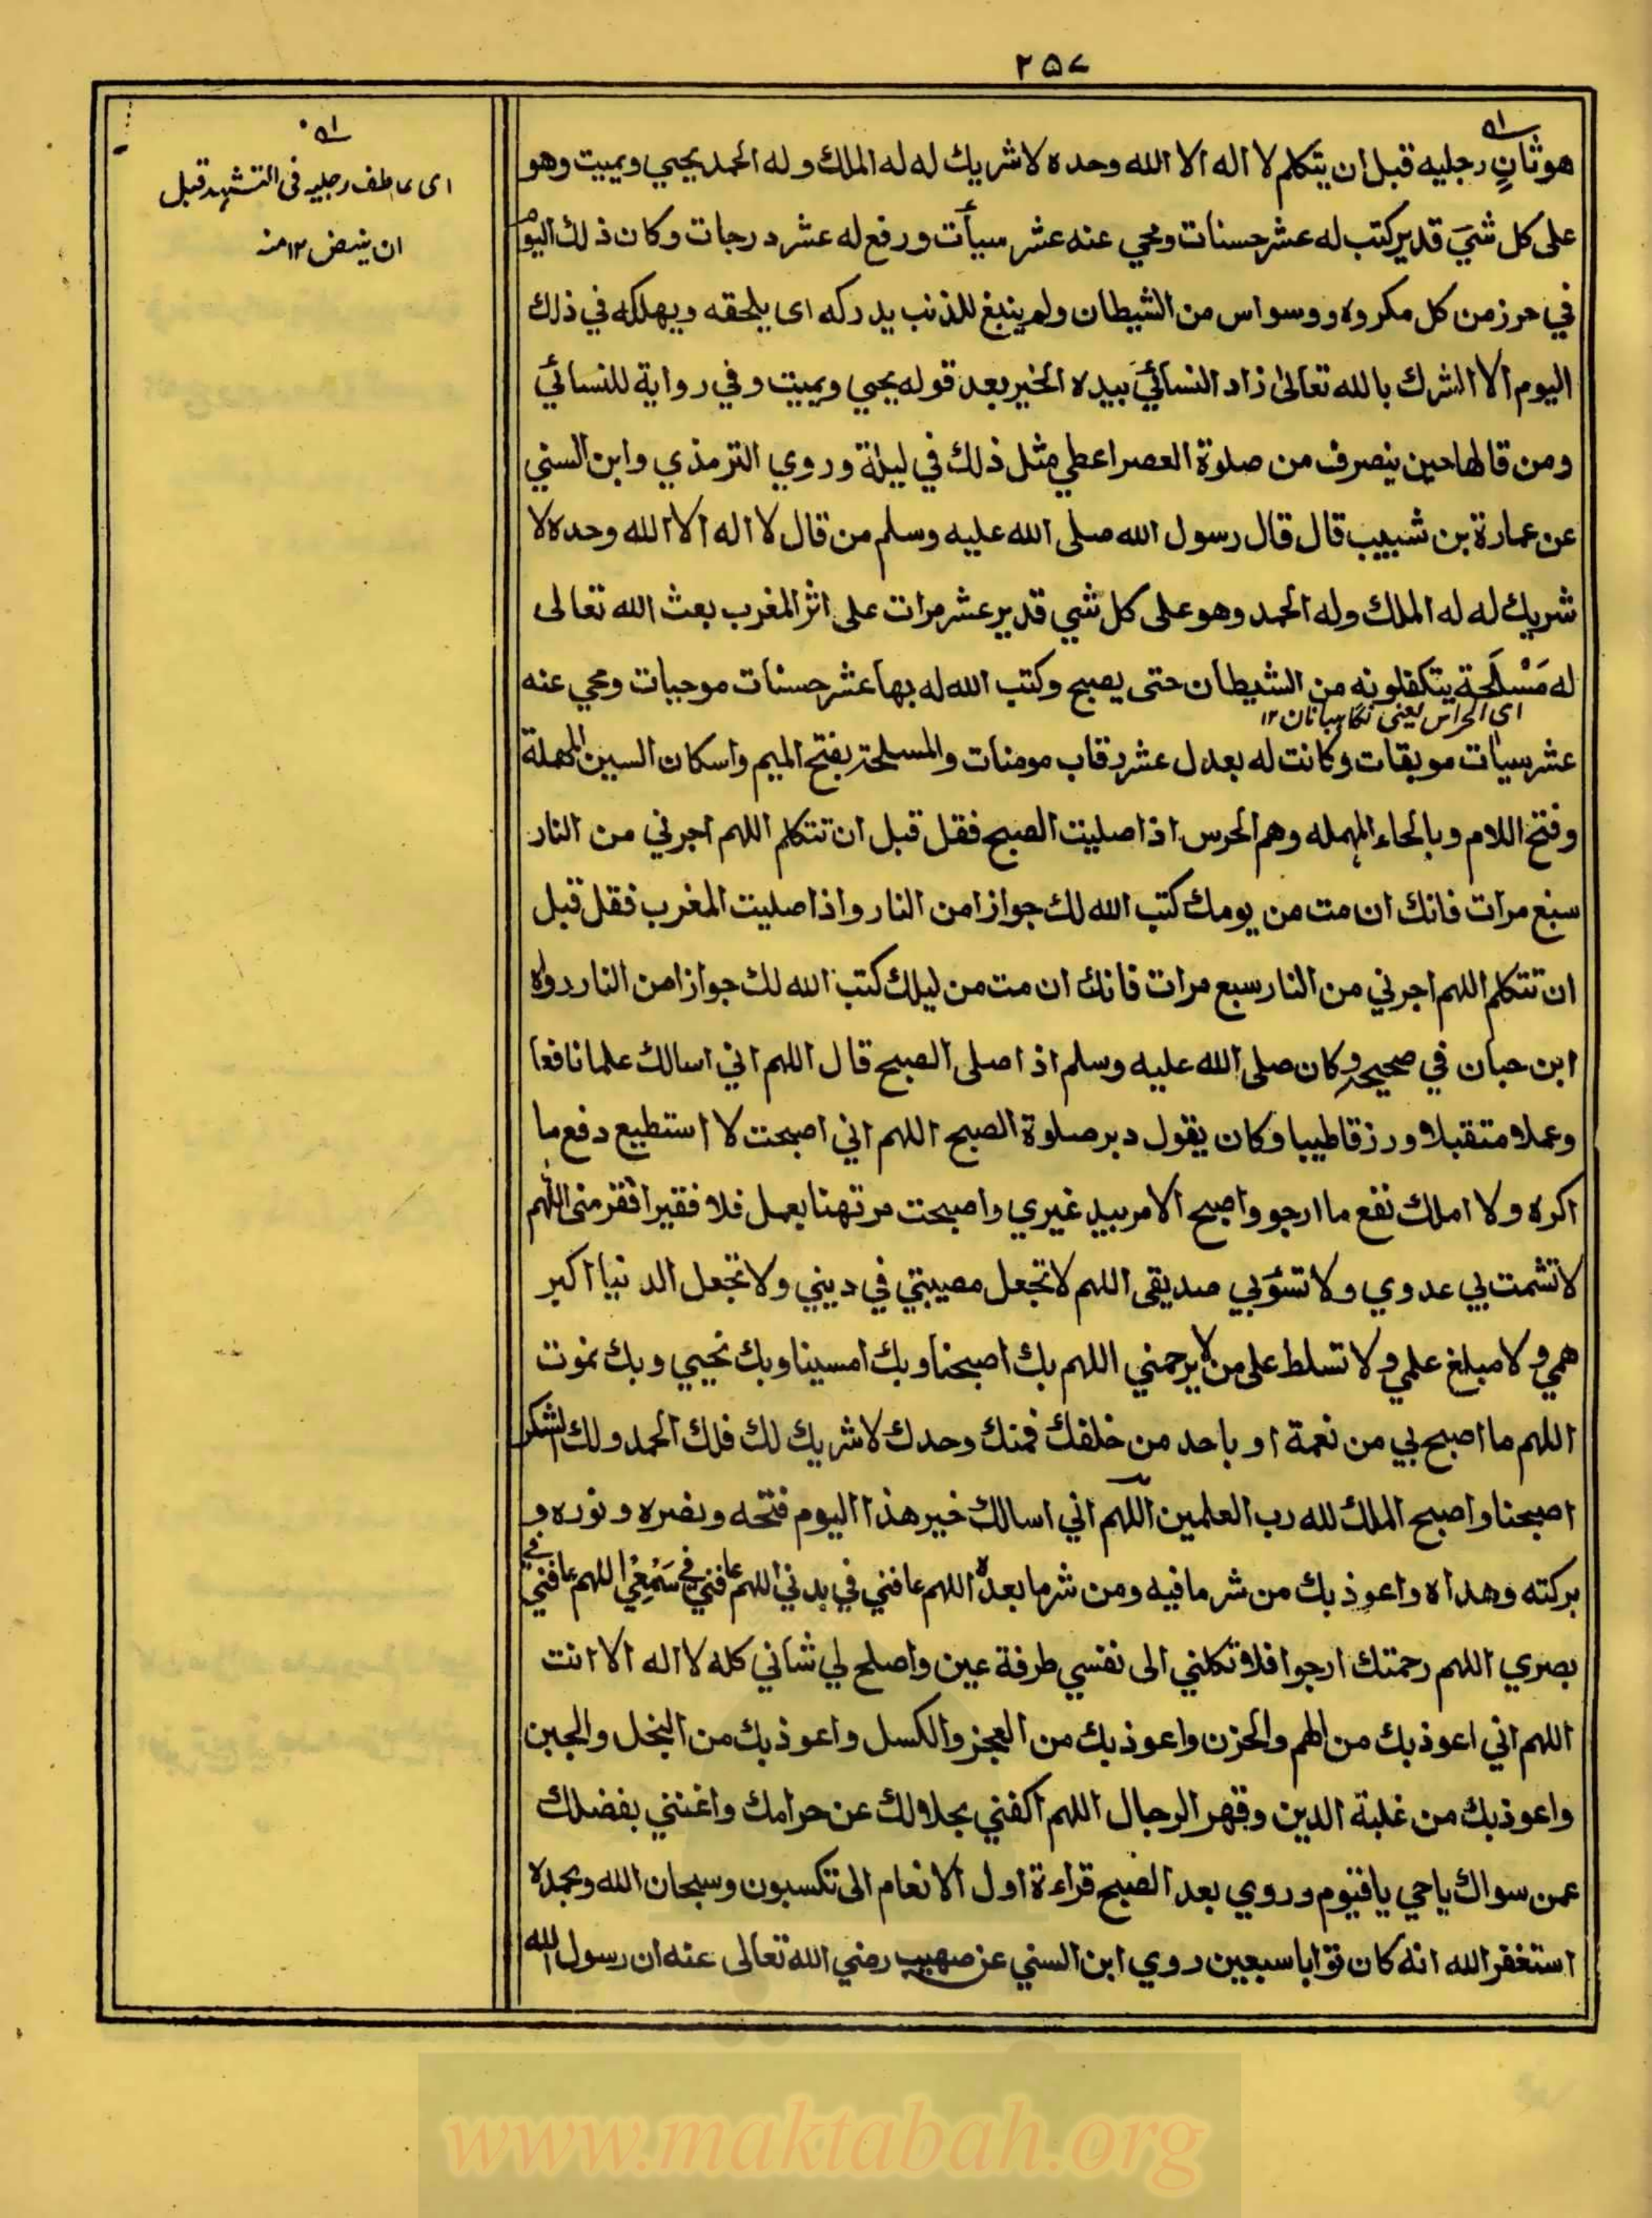 ٢٥٧
هو ثانٍ رجليه قبل ان يتكلم لا اله الا الله وحده لا شريك له له الملك وله الحمد يحيي ويميت وهو
على كل شيَ قدير كتب له عشر حسنات ومحي عنه عشر سيأت ورفع له عشر درجات وكان ذلك اليوم
في حرز من كل مكروه ووسواس من الشيطان ولم ينبغ للذنب يدركه اى يلحقه ويهلكه في ذلك
اليوم الا الشرك بالله تعالى زاد النسائي بيده الخير بعد قوله يحيي ويميت وفي رواية للنسائي
ومن قالها حين ينصرف من صلوة العصر اعطي مثل ذلك في ليلة وروي الترمذي وابن السني
عن عمارة بن شبيب قال قال رسول الله صلى الله عليه وسلم من قال لا اله الا الله وحده لا
شريك له له الملك وله الحمد وهو على كل شي قدير عشر مرات على اثر المغرب بعث الله تعالى
له مَسْلَحة يتكفلونه من الشيطان حتى يصبح وكتب الله له بها عشر حسنات موجبات ومحي عنه
اى الحراس يعنى نگاہبانان ١٢
عشر سيات موبقات وكانت له بعدل عشر رقاب مومنات والمسلحة بفتح الميم واسكان السين المهملة
وفتح اللام وبالحاء المهمله وهم الحرس اذا صليت الصبح فقل قبل ان تتكلم اللهم اجرني من النار
سبع مرات فانك ان مت من يومك كتب الله لك جوازا من النار واذا صليت المغرب فقل قبل
ان تتكلم اللهم اجرني من النار سبع مرات فانك ان مت من ليلك كتب الله لك جوازا من النار رواه
ابن حبان في صحيحه وكان صلى الله عليه وسلم اذا صلى الصبح قال اللهم اني اسالك علما نافعا
وعملا متقبلا ورزقا طيبا وكان يقول دبر صلوة الصبح اللهم اني اصبحت لا استطيع دفع ما
اكره ولا املك نفع ما ارجو واصبح الامر بيد غيري واصبحت مرتهنا بعمل فلا فقير افقر مني اللهم
لا تشمت بي عدوي ولا تسؤ بي صديقى اللهم لا تجعل مصيبتي في ديني ولا تجعل الدنيا اكبر
همي ولا مبلغ علمي ولا تسلط على من لا يرحمني اللهم بك اصبحنا وبك امسينا وبك نحيي وبك نموت
اللهم ما اصبح بي من نعمة او باحد من خلقك فمنك وحدك لا شريك لك فلك الحمد ولك الشكر
اصبحنا واصبح الملك لله رب العلمين اللّهم اني اسالك خير هذا اليوم فتحه ونصره ونوره و
بركته وهداه واعوذ بك من شر ما فيه ومن شر ما بعده اللهم عافني في بدني اللهم عافني في سَمْعِيْ اللهم عافني في
بصري اللهم رحمتك ارجوا فلا تكلني الى نفسي طرفة عين واصلح لي شاني كله لا اله الا انت
اللهم اني اعوذ بك من الهم والحزن واعوذ بك من العجز والكسل واعوذ بك من البخل والجبن
واعوذ بك من غلبة الدين وقهر الرجال اللهم اكفني بحلالك عن حرامك واغنني بفضلك
عمن سواك يا حي يا قيوم وروي بعد الصبح قراءة اول الانعام الى تكسبون وسبحان الله وبحمده
استغفر الله انه كان توابا سبعين روي ابن السني عن صهيب رضي الله تعالى عنه ان رسول الله
اى عاطف رجليه فى التشهد قبل
ان ينهض ١٢ منه
www.maktabah.org